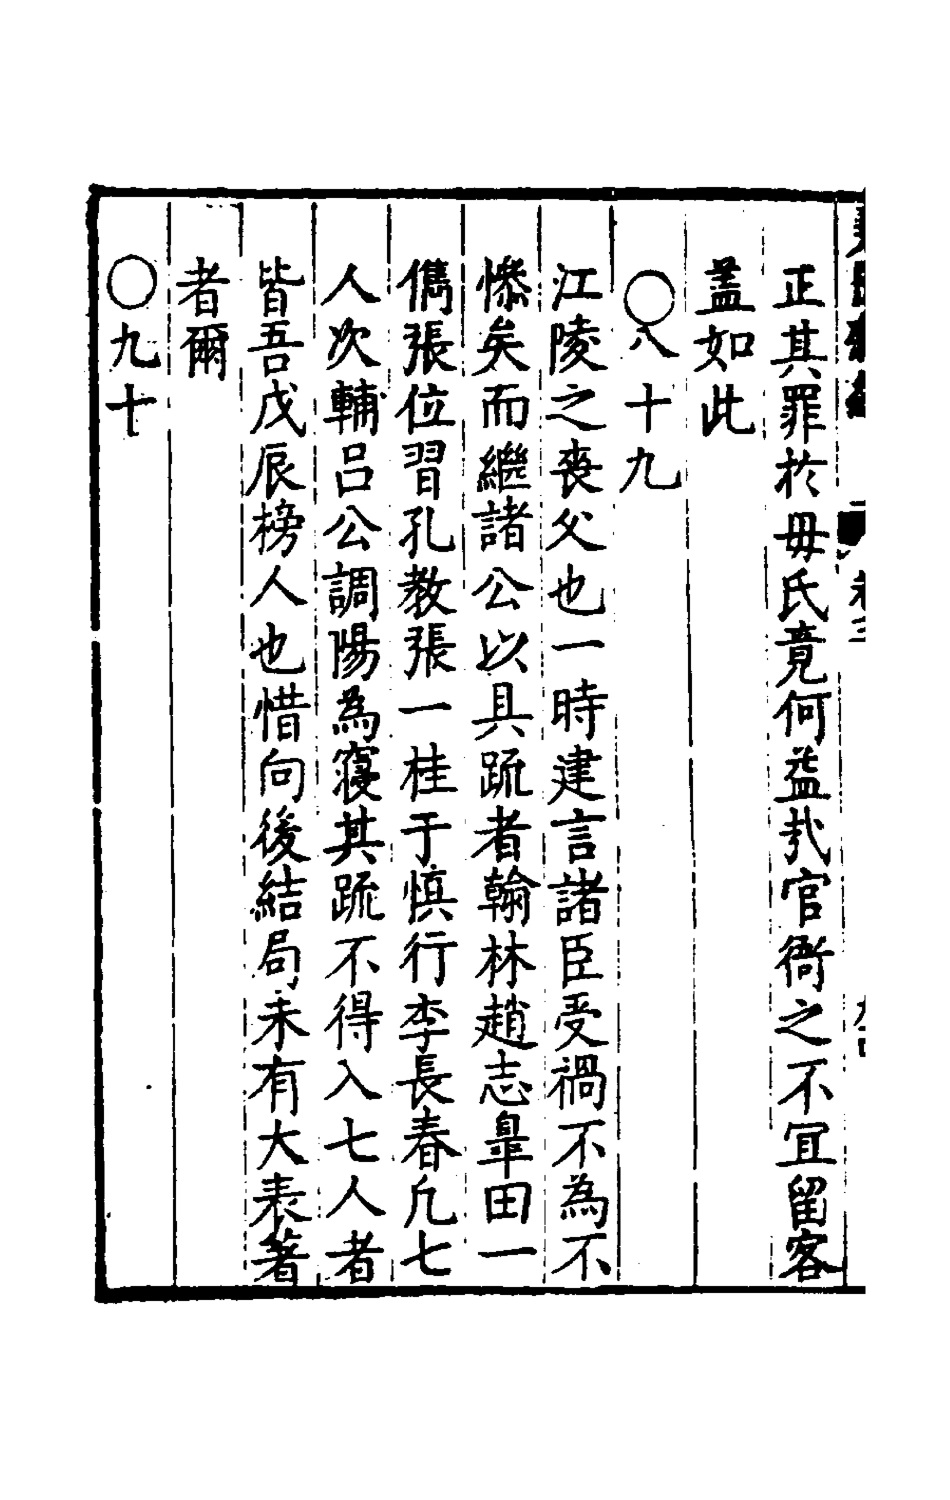 正其罪於毋氏竟何益哉官衙之不宜留客
葢如此
○八十九
江陵之喪父也一時建言諸臣受禍不為不
慘矣而繼諸公以具疏者翰林趙志臯田一
儁張位習孔教張一桂于慎行李長春凢七
人次輔呂公調陽為寢其疏不得入七人者
皆吾戊辰榜人也惜向後結局未有大表著
者爾
○九十